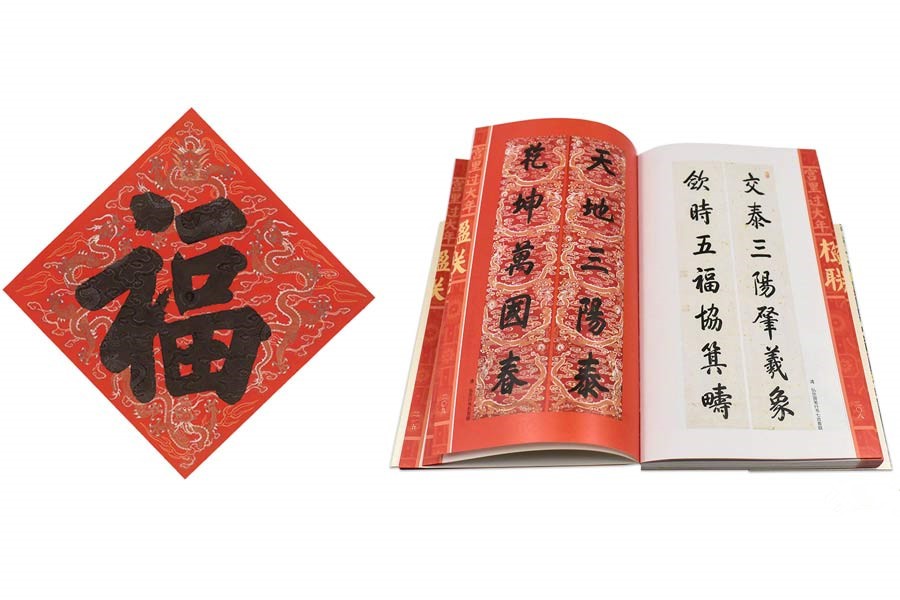 福
天地三陽泰
乾坤萬國春
交泰三陽肇羲象
欽時五福協箕疇
宮里过大年
楹联
宮里过大年
楹联